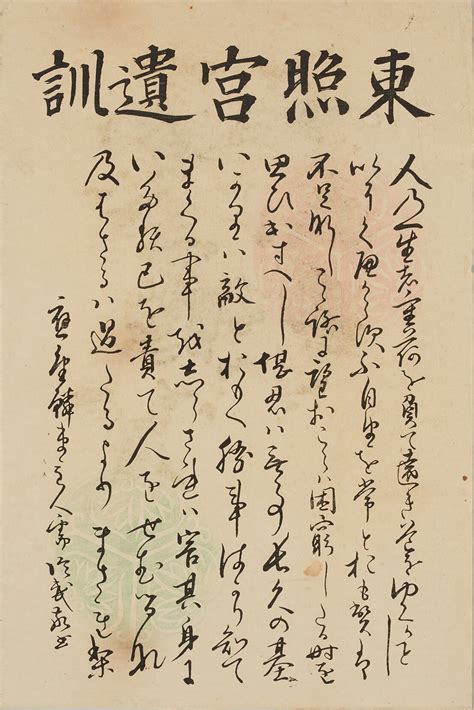 東照宮遺訓
人乃一生者重荷を負て遠き道をゆくかこと
いそくへからす不自由を常とおもへは
不足なしこゝろに望おこらハ困窮したる時を
思ひ出すへし堪忍ハ無事長久の基
いかりハ敵とおもへ勝事はかり知て
まくる事を志らされハ害其身に
いたる己を責て人をせむるな
及はさるハ過たるよりまされり